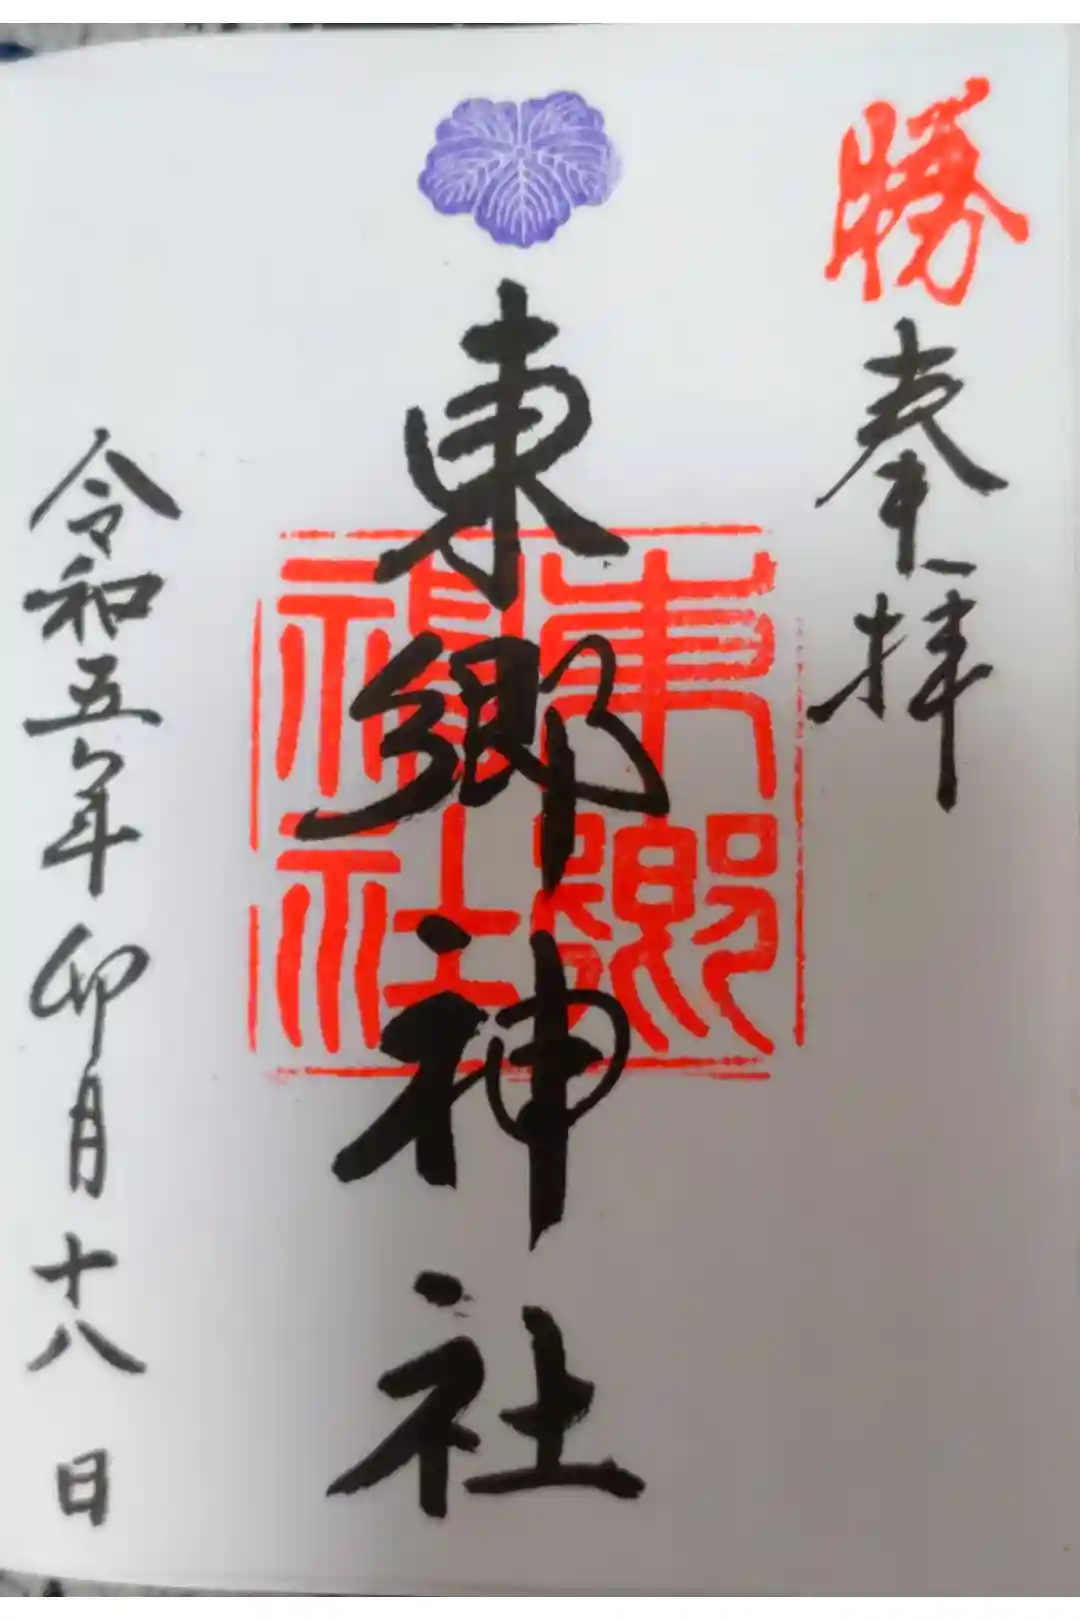 勝
奉拝
東郷神社
東郷神社
令和五年卯月十八日